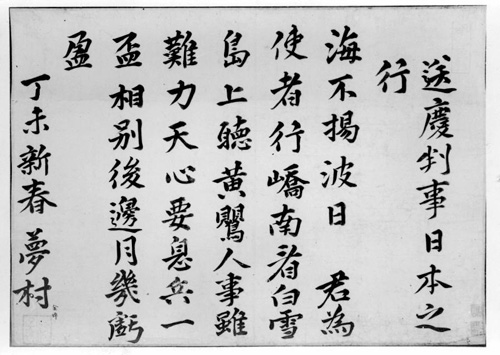 送慶判事日本之
行
海不揚波日 君為
使者行嶠南看白雪
島上聽黃鸎人事雖
難力天心要息兵一
盃相別後邊月幾虧
盈
丁未新春 夢村